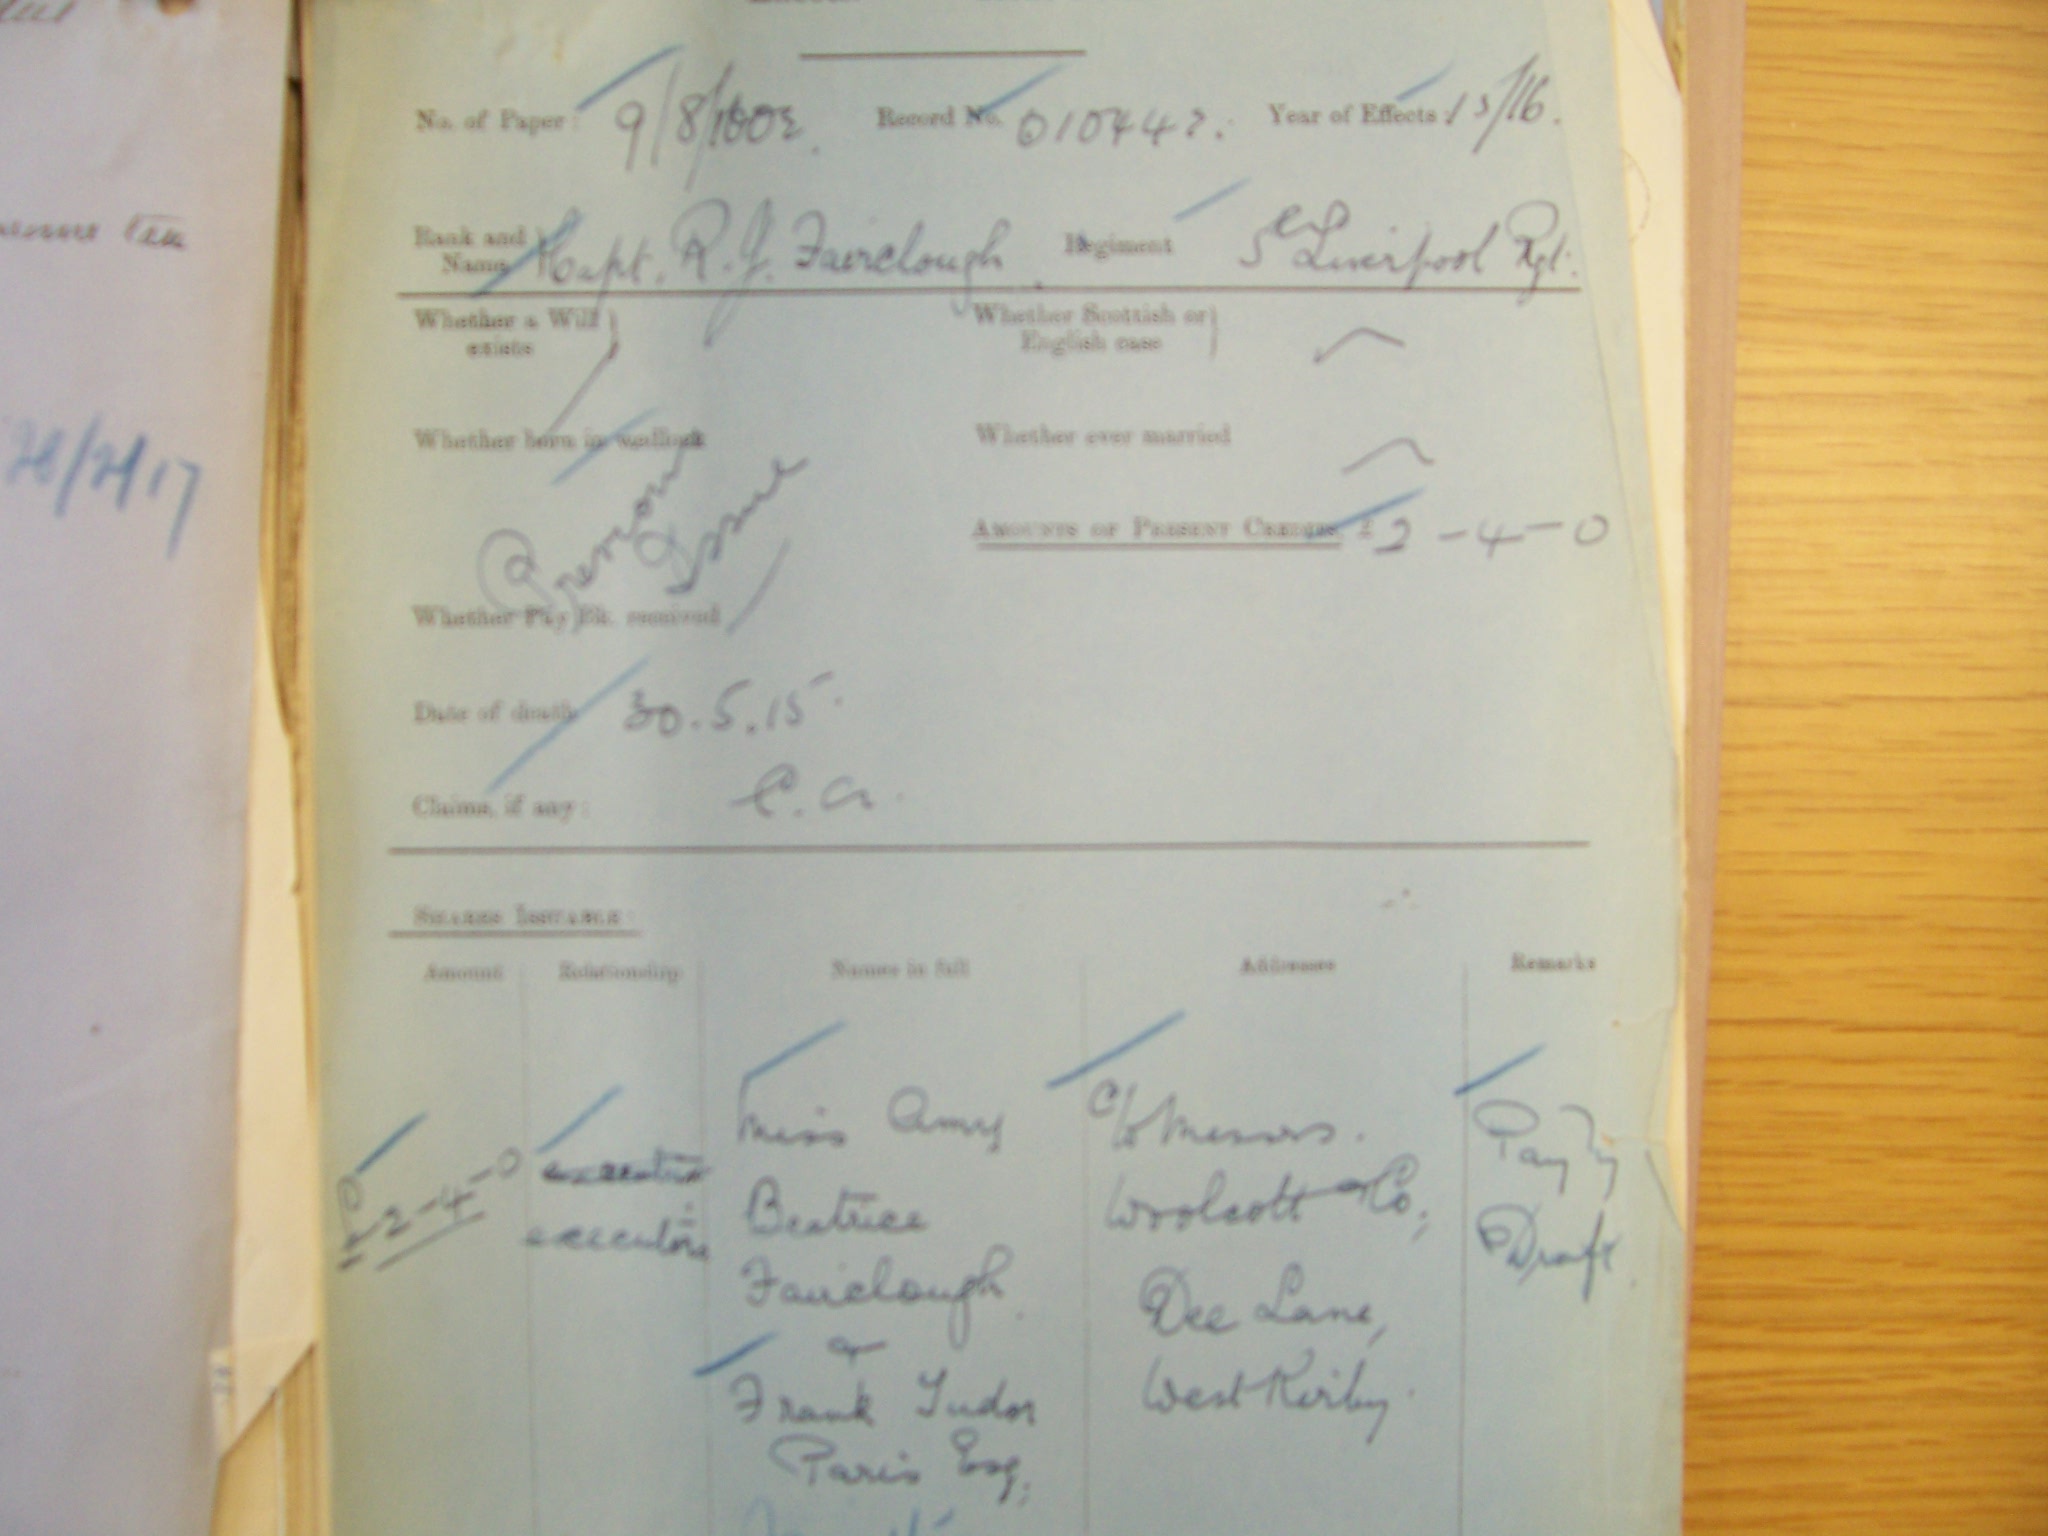 No. of Paper: 9/8/1002. Record No. 010442. Year of Effects: 15/16.
Rank and Name Capt. R. J. Fairclough Regiment 5 Liverpool Rgt.
Whether a Will exists
Whether Scottish or English case
Whether born in wedlock
Whether ever married
Previous Issue
Amounts of Present Credits £ 2-4-0
Whether Pay Bk. received
Date of death 30.5.15.
Claims, if any:
Shares Issuable:
Amount Relationship Names in full Addresses Remarks
£2-4-0
executrix
executors
Miss Amy
Beatrice
Fairclough
&
Frank Tudor
Paris Esq.
c/o Messrs.
Woolcott & Co.,
Dee Lane,
West Kirby.
Pay by
Draft.
17